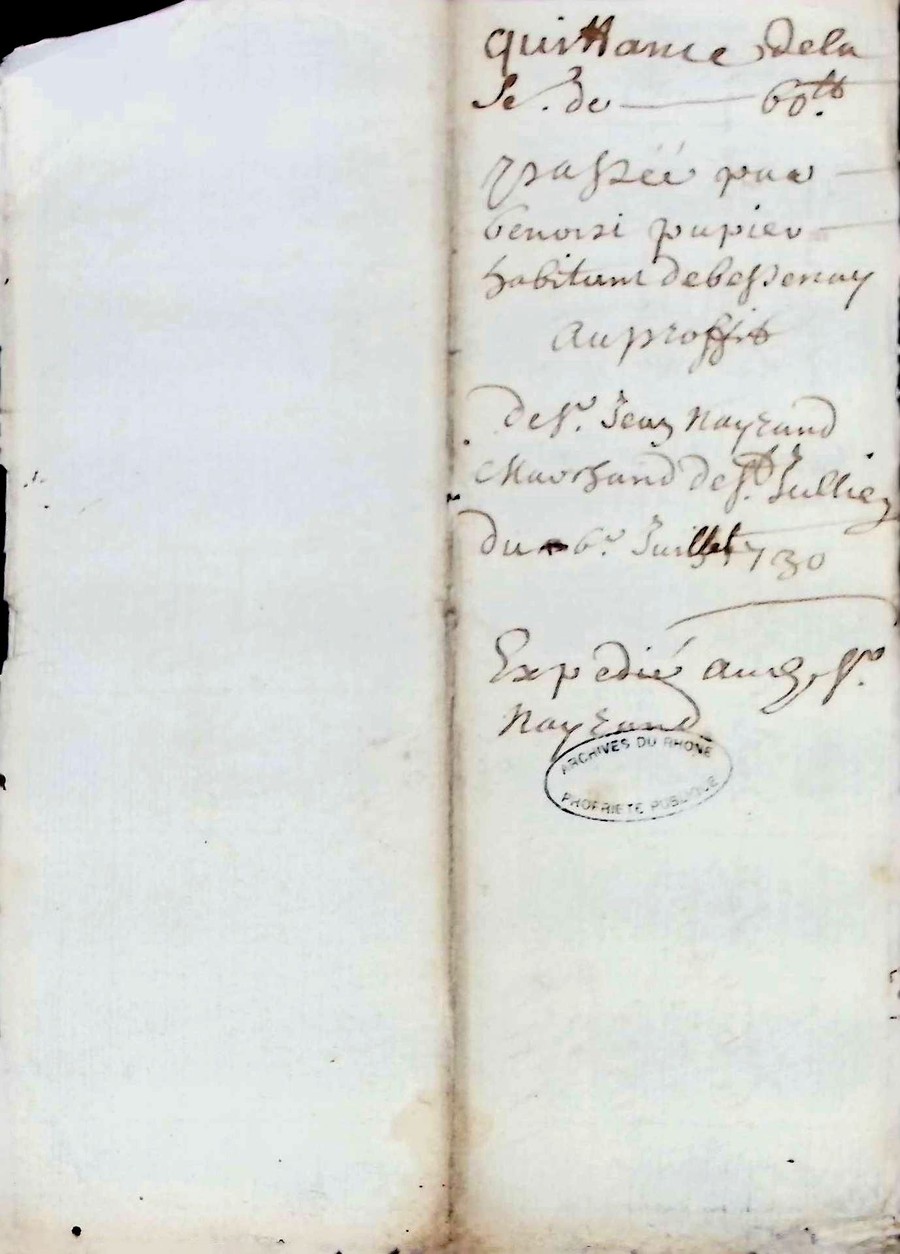 quittance dela
Se. de 60.tt
passéé par
benoist papier
habitant debessenay
Auproffit
de sr. Jean Nayrand
Marchand de st. Jullien
du 6e. Juillet 1730
Expedié aud. sr.
Nayrand
ARCHIVES DU RHONE
PROPRIETE PUBLIQUE